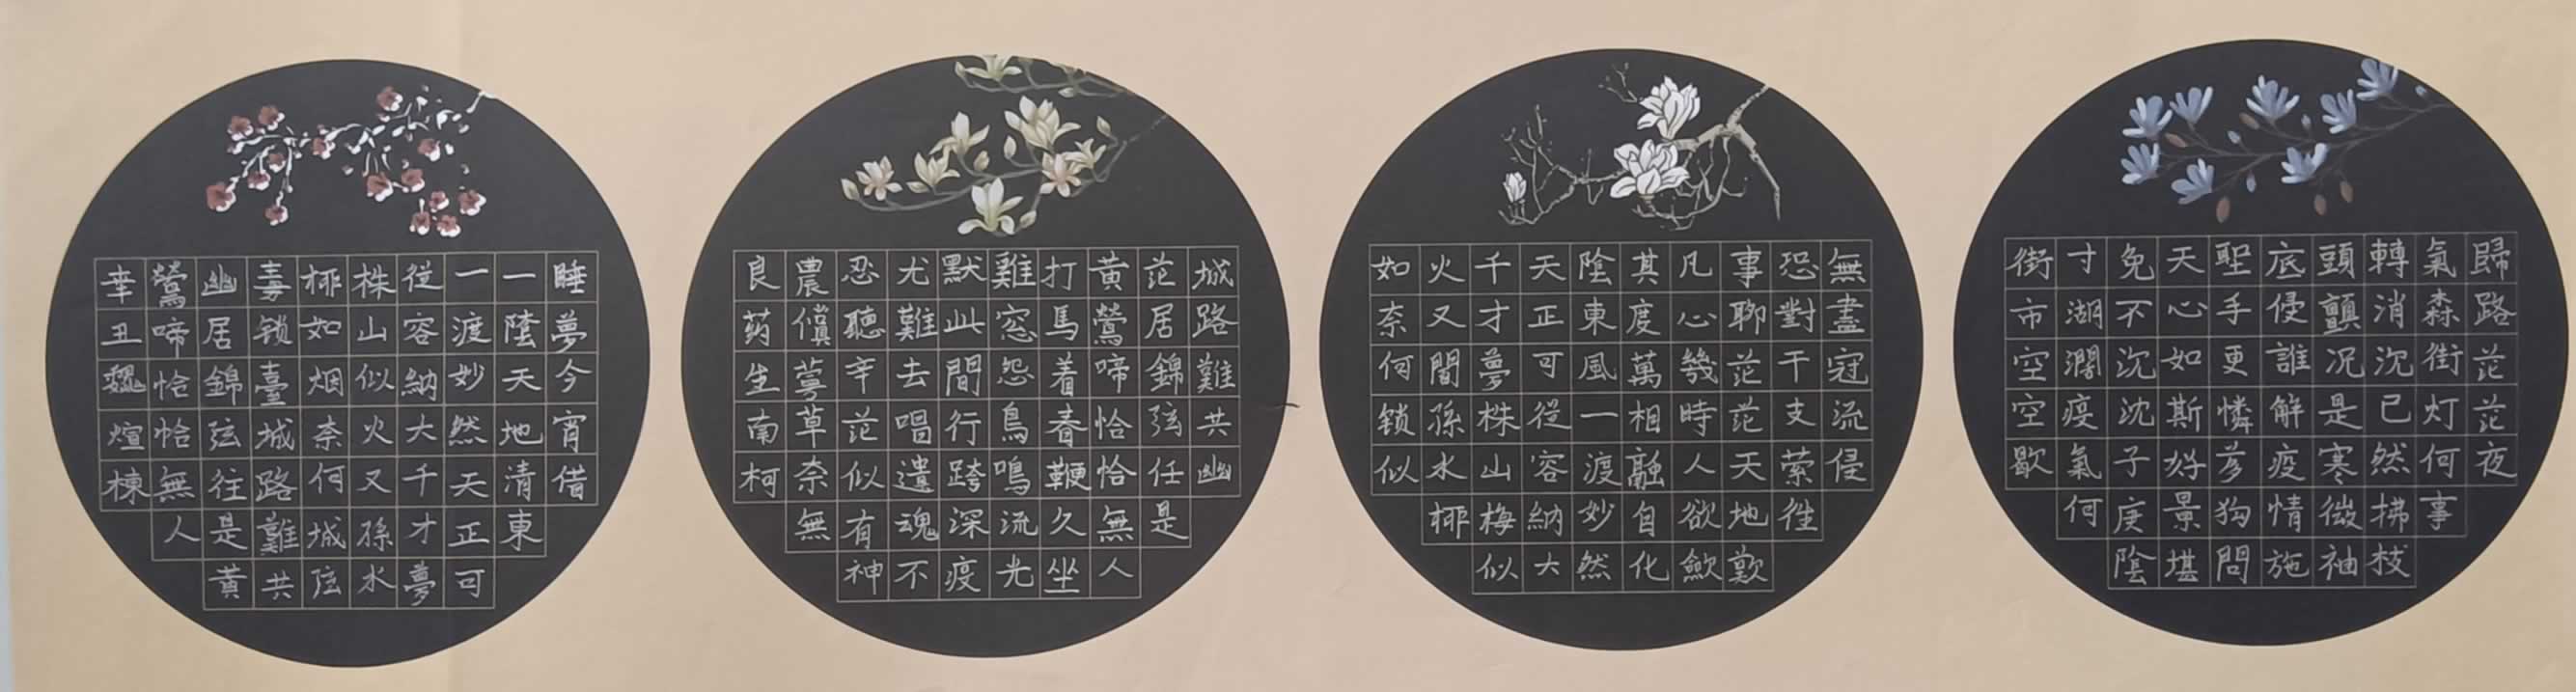 歸路茫茫夜
氣森街灯何事
轉消沉已然拂枝
頭顫况是寒微袖
底侵誰解疫情施
聖手更憐芻狗問
天心如斯好景堪
免不沉沈子庚陰
寸湖濶疫氣何
街市空空歇
無盡冠流侵
恐對干支縈徃
事聊茫茫天地歎
凡心幾時人欲歛
其度萬相融自化
陰東風一渡妙然
天正可從容納大
千才夢株山梅似
火又閒孫水桺
如奈何锁似
城路難共幽
茫居錦弦任是
黄鶯啼恰恰無人
打馬着春鞭久坐
難窓怨鳥鳴流光
默此間行跨深疫
尤難去唱遺魂不
忍聽辛茫似有神
農儻萼草奈無
良药生南柯
睡夢今宵借
一陰天地清東
一渡妙然天正可
從容納大千才夢
株山似火又孫水
桺如烟奈何城弦
毒锁臺城路難共
幽居錦弦往是黄
鶯啼恰恰無人
辛丑魏煊棟